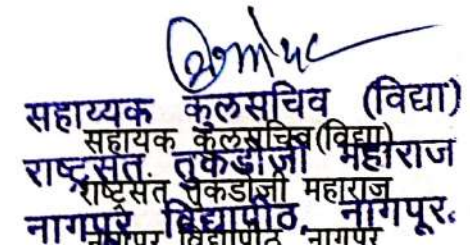 सहाय्यक कुलसचिव (विद्या)
सहायक कुलसचिव (विद्या)
राष्ट्रसंत तुकडोजी महाराज
राष्ट्रसंत तुकडोजी महाराज
नागपूर विद्यापीठ, नागपूर.
नागपूर विद्यापीठ, नागपूर